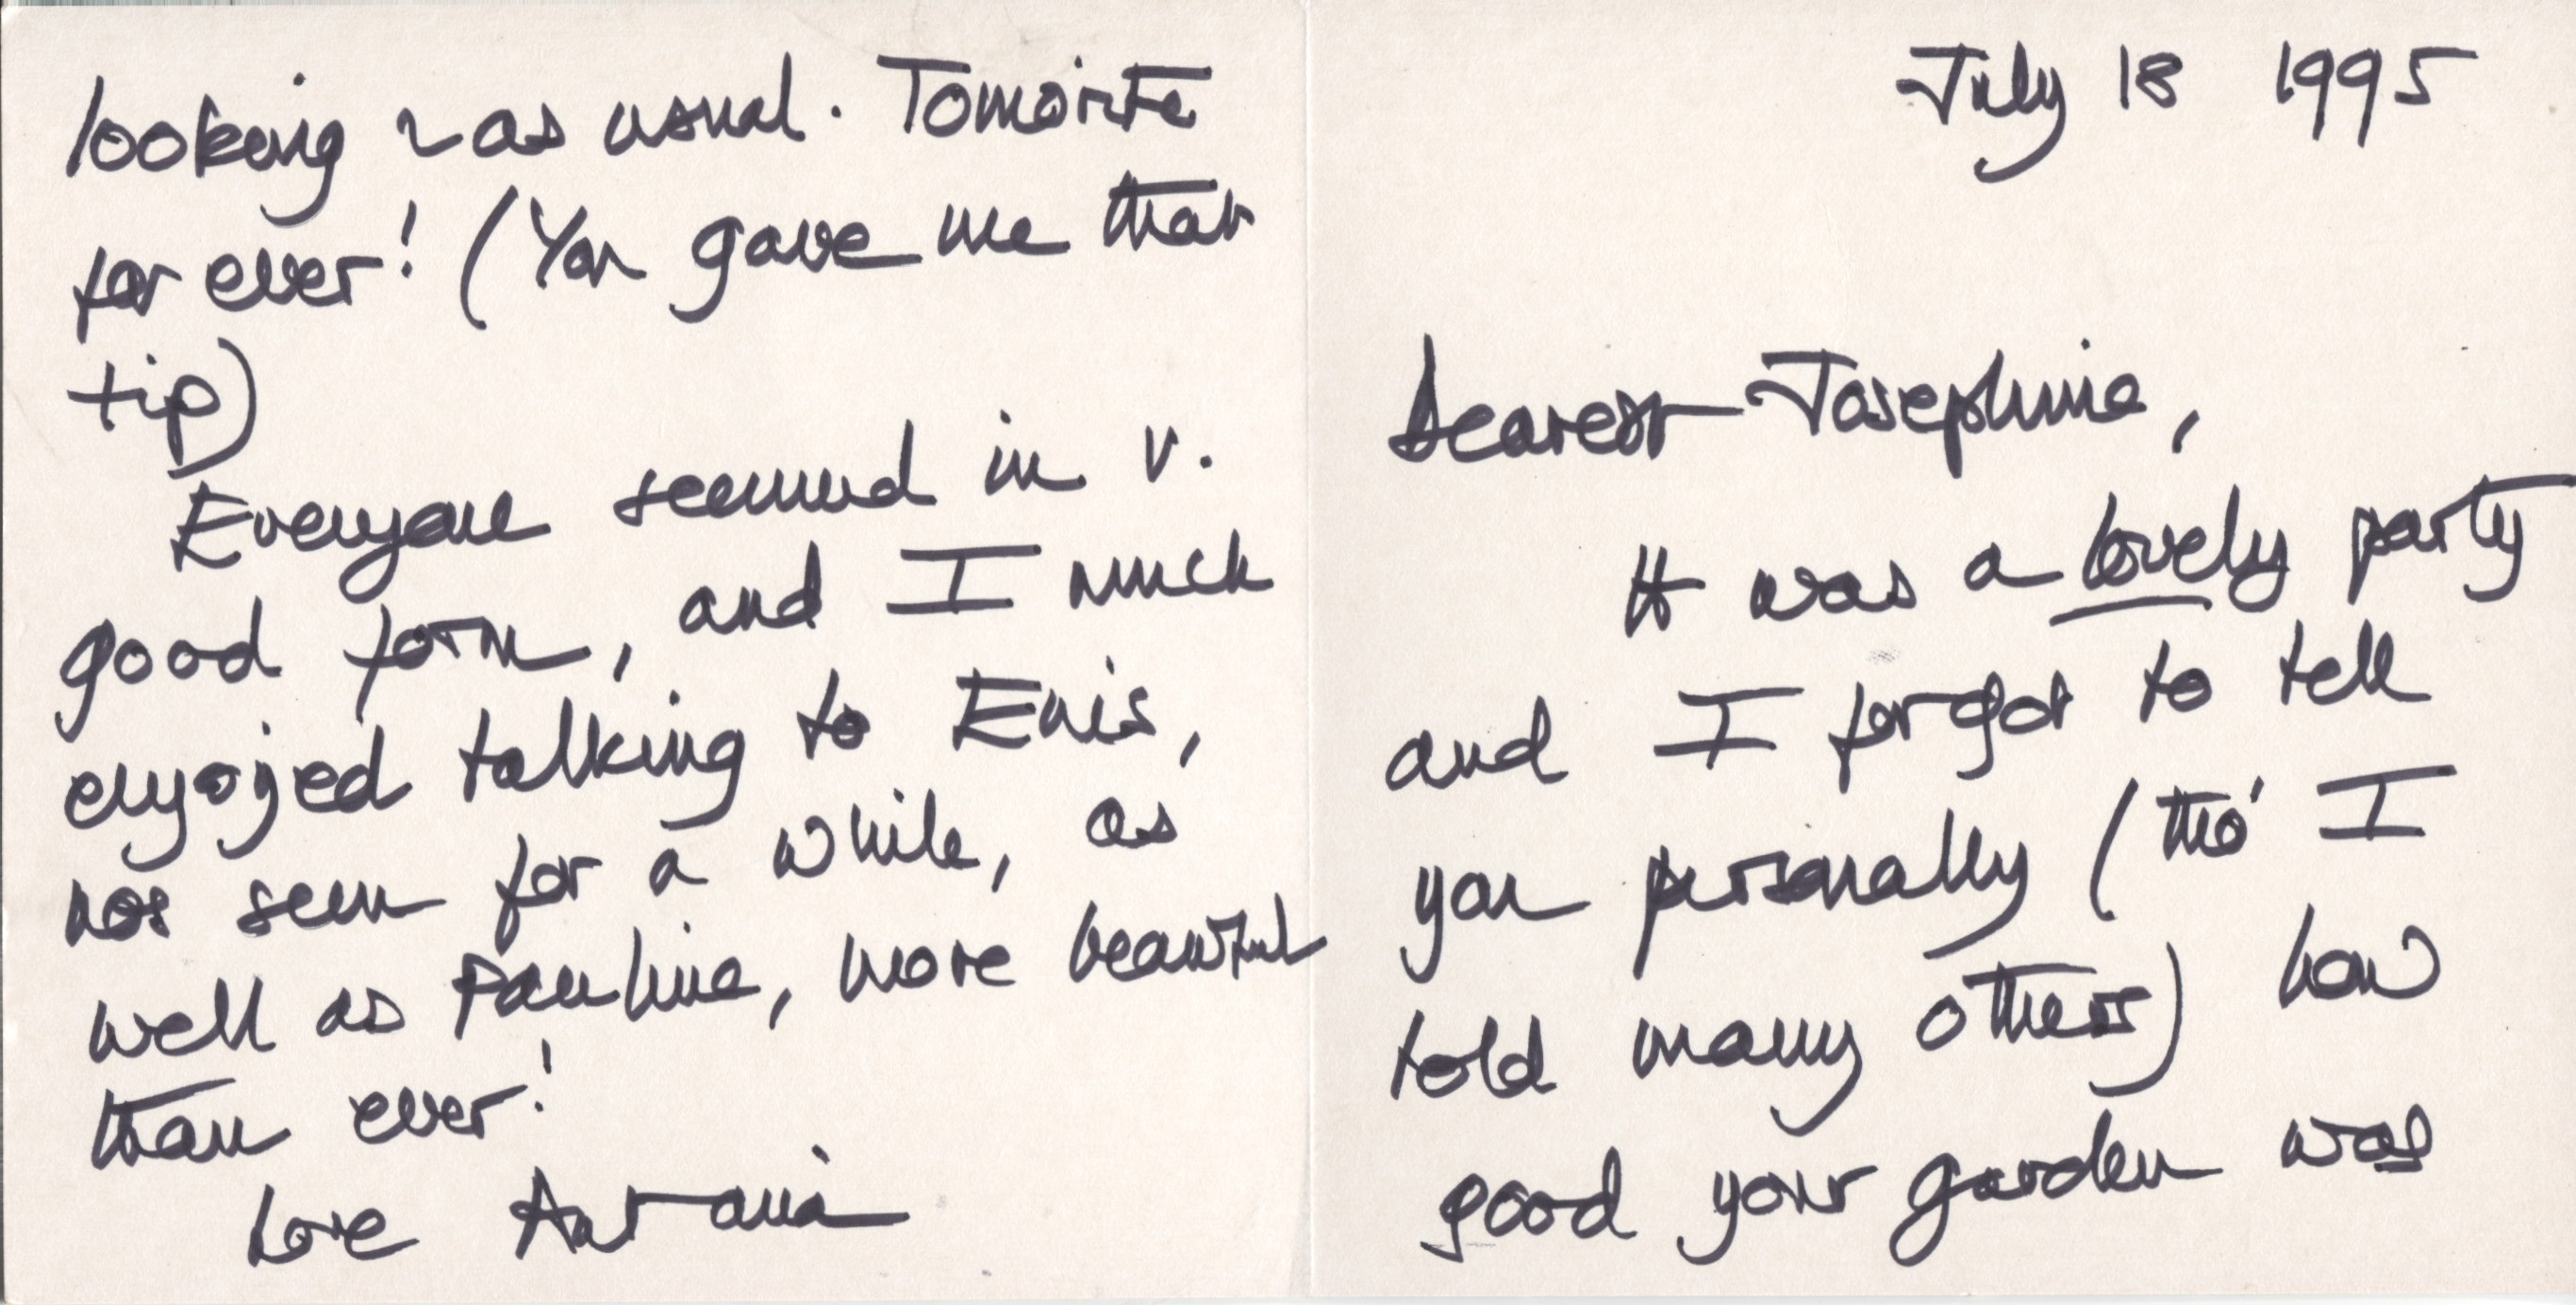 July 18 1995
Dearest Josephine,
It was a lovely party
and I forgot to tell
you personally (tho' I
told many others) how
good your garden was
looking ~ as usual. Tomorite
for ever! (You gave me that
tip)
Everyone seemed in v.
good form, and I much
enjoyed talking to Enis,
not seen for a while, as
well as Pauline, more beautiful
than ever!
Love Antonia